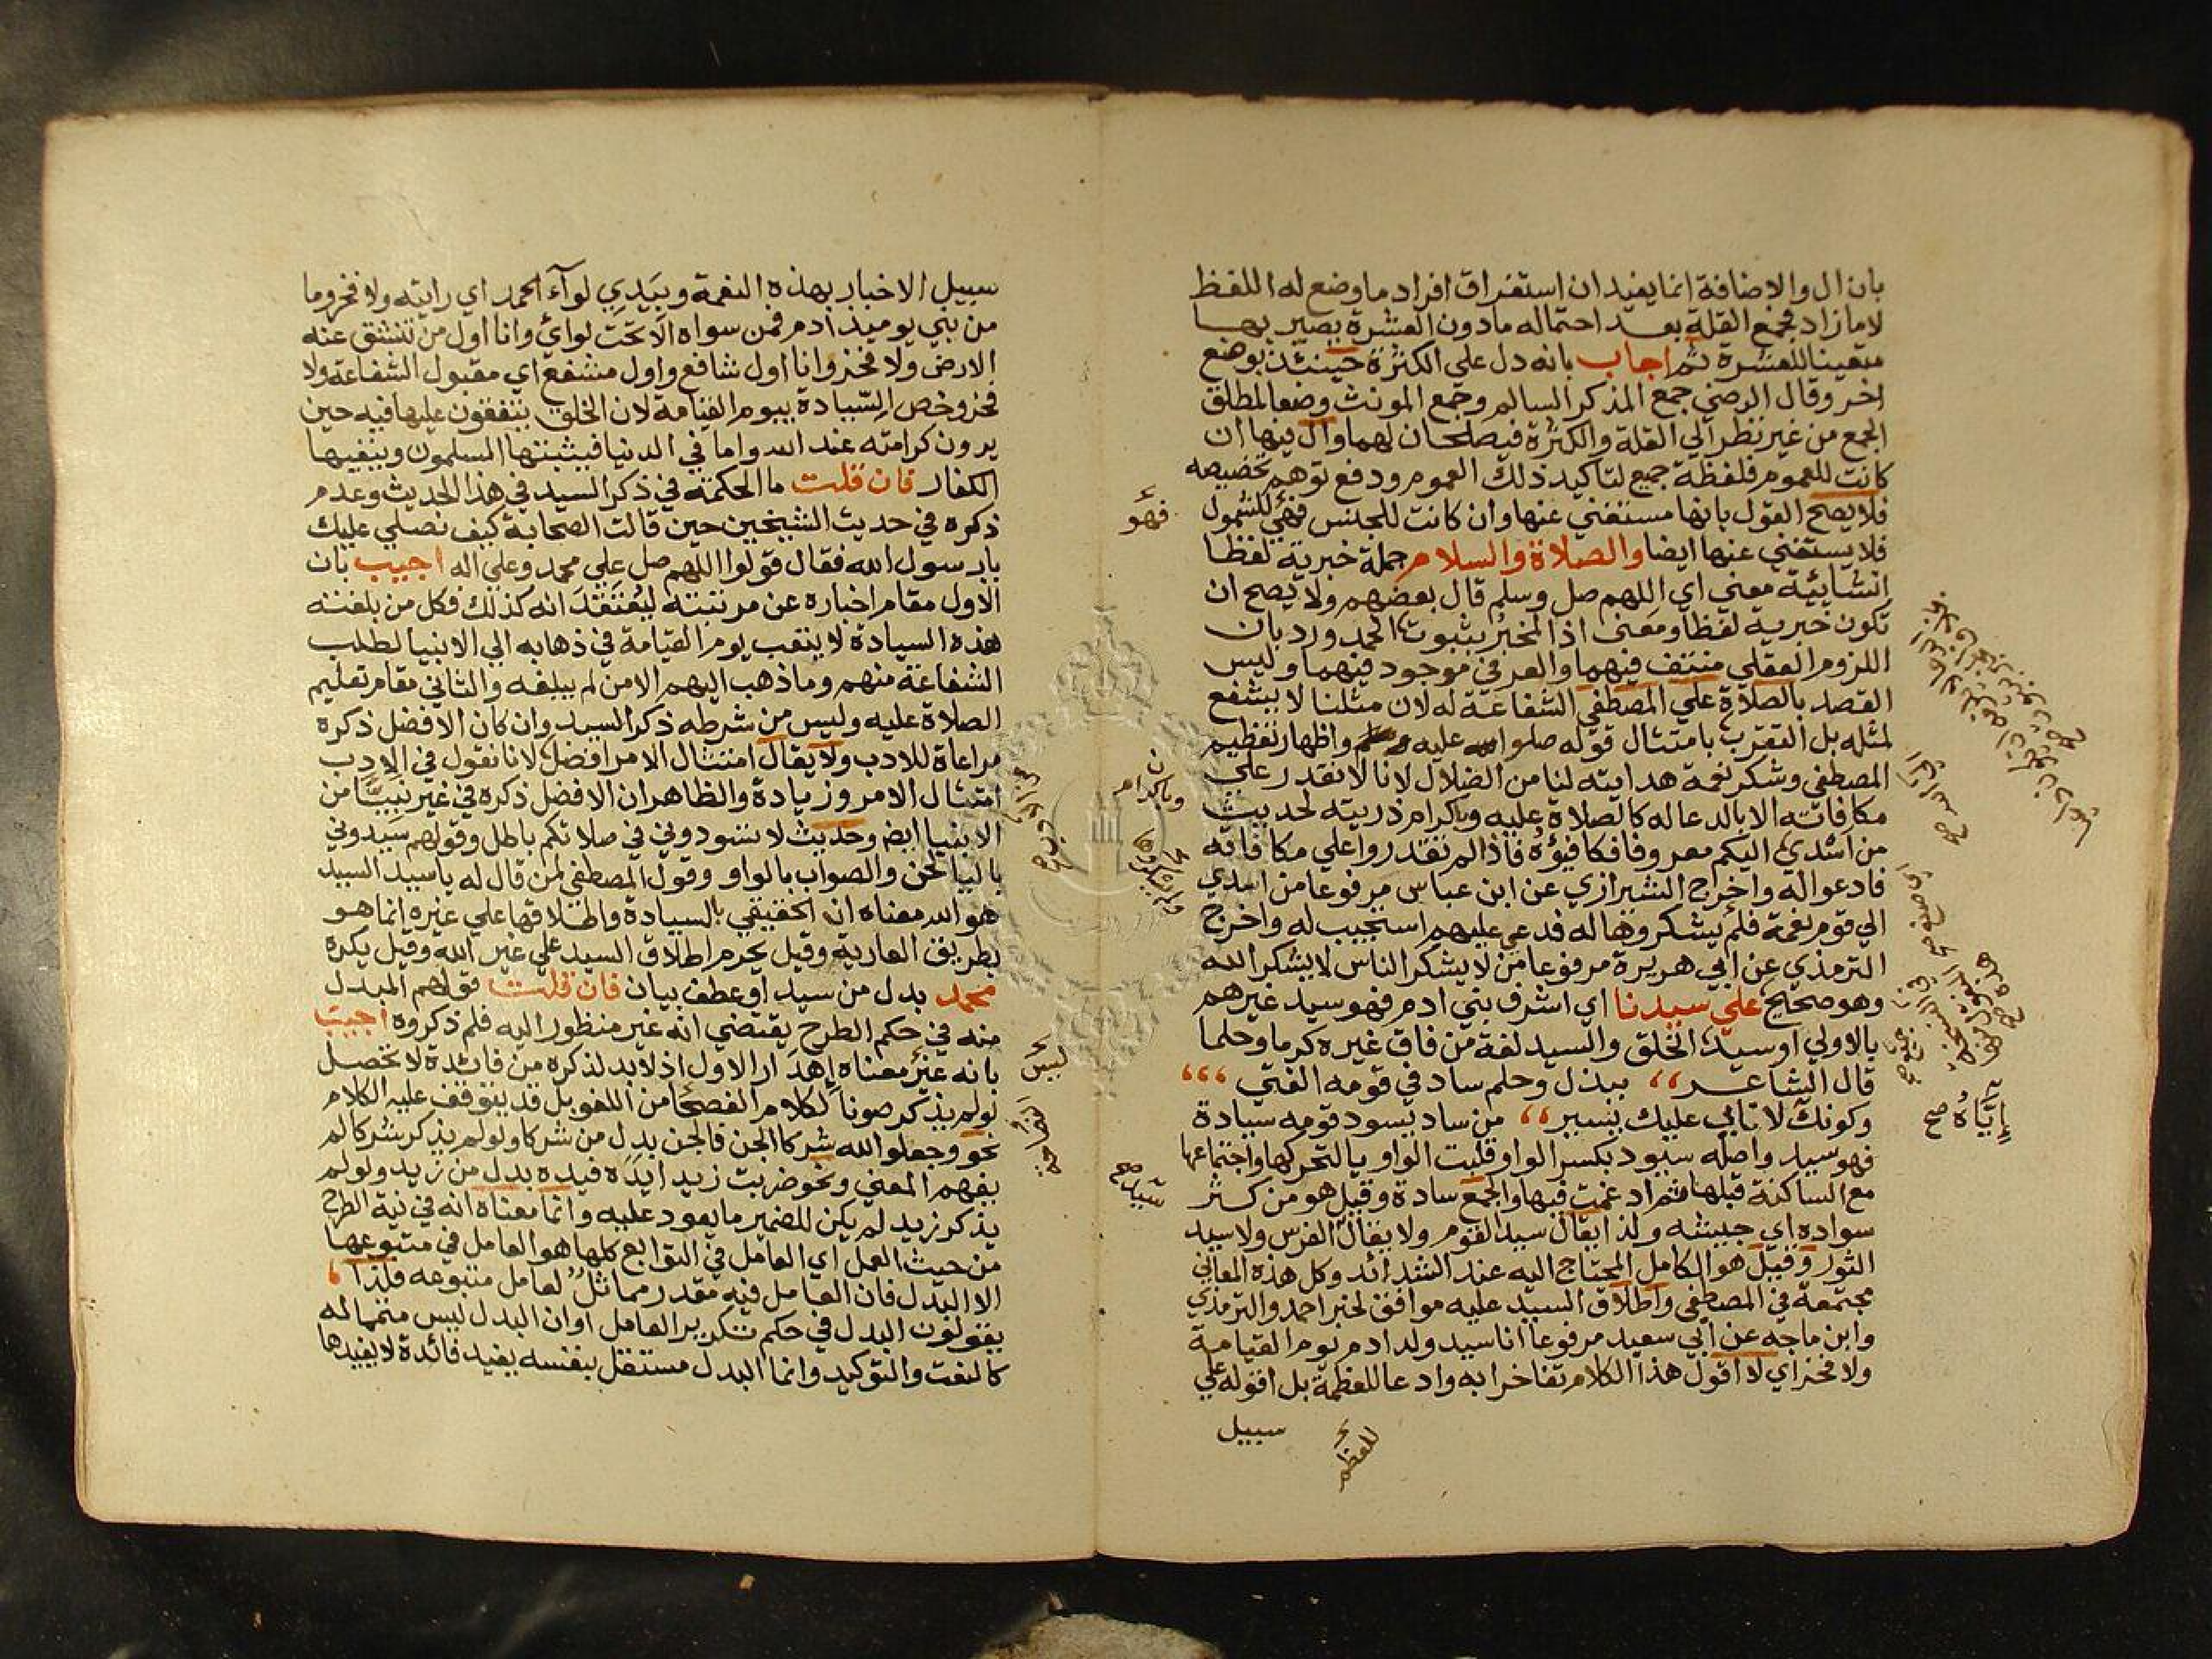 بان ال والاضافة انما يفيدان استغراق افراد ما وضع له اللفظ
لا ما زاد فجمع القلة بعد احتماله مادون العشرة يصير بها
متعينا للعشرة ثم اجاب بانه دل على الكثرة حينئذ بوضع
اخر وقال الرضي جمع المذكر السالم وجمع المونث وضعا لمطلق
الجمع من غير نظر الي القلة والكثرة فيصلحان لهما وال فيها ان
كانت للعموم فلفظة جميع لتاكيد ذلك العموم ودفع توهم تخصيصه
فلا يصح القول بانها مستغني عنها وان كانت للجنس فهي للشمول
فلا يستغني عنها ايضا والصلاة والسلام جملة خبرية لفظا
انشائية معني اي اللهم صل وسلم قال بعضهم ولا يصح ان
تكون خبرية لفظا ومعنى اذ المخبر بثبوت الحمد ورد بان
اللزوم العقلي منتف فيهما والعرفي موجود فيهما وليس
القصد بالصلاة علي المصطفي الشفاعة له لان مثلنا لا يشفع
لمثله بل التقرب بامتثال قوله صلوا عليه واظهار تعظيم
المصطفي وشكر نعمة هدايته لنا من الضلال لانا لا نقدر علي
مكافاته الا بالدعا له كالصلاة عليه وباكرام ذريته لحديث
من اسدي اليكم معروفا فكافيؤه فاذا لم تقدروا علي مكافاته
فادعوا له واخرج الشيرازي عن ابن عباس مرفوعا من اسدي
الي قوم نعمة فلم يشكروها له فدعي عليهم استجيب له واخرج
الترمذي عن ابي هريرة مرفوعا من لا يشكر الناس لا يشكر الله
وهو صحيح علي سيدنا اي اشرف بني ادم فهو سيد غيرهم
بالاولي او سيد الخلق والسيد لغة من فاق غيره كرما وحلما
قال الشاعر ،، ببذل وحلم ساد في قومه الفتي ،،،
وكونك لاتابي عليك يسير ،، من ساد يسود قومه سيادة
فهو سيد واصله سيود بكسر الواو قلبت الواو يا لتحركها واجتماعها
مع الساكنة قبلها ثم ادغمت فيها والجمع سادة وقيل هو من كثر
سواده اي جيشه ولذا يقال سيد القوم ولا يقال الفرس ولا سيد
الثور وقيل هو الكامل المحتاج اليه عند الشدائد وكل هذه المعاني
مجتمعة في المصطفي واطلاق السيد عليه موافق لخبر احمد والترمذي
وابن ماجه عن ابي سعيد مرفوعا انا سيد ولد ادم يوم القيامة
ولا فخر اي لا اقول هذا الكلام تفاخرا به وادعا للعظمة بل اقوله علي
سبيل
للعظم
فهو
سيد صح
إيَّاهُ صح
سبيل الاخبار بهذه النعمة وبيدي لوآء الحمد اي رايته ولا فخر وما
من نبي يوميذ ادم فمن سواه الا تحت لوائ وانا اول من تنشق عنه
الارض ولا فخر وانا اول شافع واول مشفع اي مقبول الشفاعة ولا
فخر وخص السيادة بيوم القيامة لان الخلق يتفقون عليها فيه حين
يرون كرامته عند الله واما في الدنيا فيثبتها المسلمون وينفيها
الكفار فان قلت ما الحكمة في ذكر السيد في هذا الحديث وعدم
ذكره في حديث الشيخين حين قالت الصحابة كيف نصلي عليك
يارسول الله فقال قولوا اللهم صل علي محمد وعلي اله اجيب بان
الاول مقام اخباره عن مرتبته ليُعتَقَدَ انه كذلك فكل من بلغته
هذه السيادة لا يتعب يوم القيامة في ذهابه الي الانبيا لطلب
الشفاعة منهم وما ذهب اليهم الا من لم يبلغه والثاني مقام تعليم
الصلاة عليه وليس من شرطه ذكر السيد وان كان الافضل ذكره
مراعاة للادب ولا يقال امتثال الامر افضل لانا نقول في الادب
امتثال الامر وزيادة والظاهر ان الافضل ذكره في غير نبينا من
الانبيا ايض وحديث لا تسودوني في صلاتكم باطل وقولهم سيدوني
باليا لحن والصواب بالواو وقول المصطفي لمن قال له ياسيد السيد
هو الله معناه انه الحقيقي بالسيادة واطلاقها علي غيره انما هو
بطريق العارية وقيل يحرم اطلاق السيد علي غير الله وقيل يكره
محمد بدل من سيد او عطف بيان فان قلت قولهم المبدل
منه في حكم الطرح يقتضي انه غير منظور اليه فلم ذكروه اجيب
بانه غيرُ معناه إهدَار الاول اذ لابد لذكره من فائدة لا تحصل
لولم يذكر صونا لكلام الفصحا من اللغو بل قد يتوقف عليه الكلام
نحو وجعلوا لله شركا الجن فالجن بدل من شركا ولولم يذكر شركا لم
يفهم المعني ونحو ضربت زيدا يَدَه فيده بدل من زيد ولولم
يذكر زيد لم يكن للضمير ما يعود عليه وانما معناه انه في نية الطرح
من حيث العمل اي العامل في التوابع كلها هو العامل في متبوعها
الا البدل فان العامل فيه مقدر مماثل لعامل متبوعه فلذا ،
يقولون البدل في حكم تكرير العامل او ان البدل ليس متمما له
كالنعت والتوكيد وانما البدل مستقل بنفسه يفيد فائدة لا يفيدها
ليس